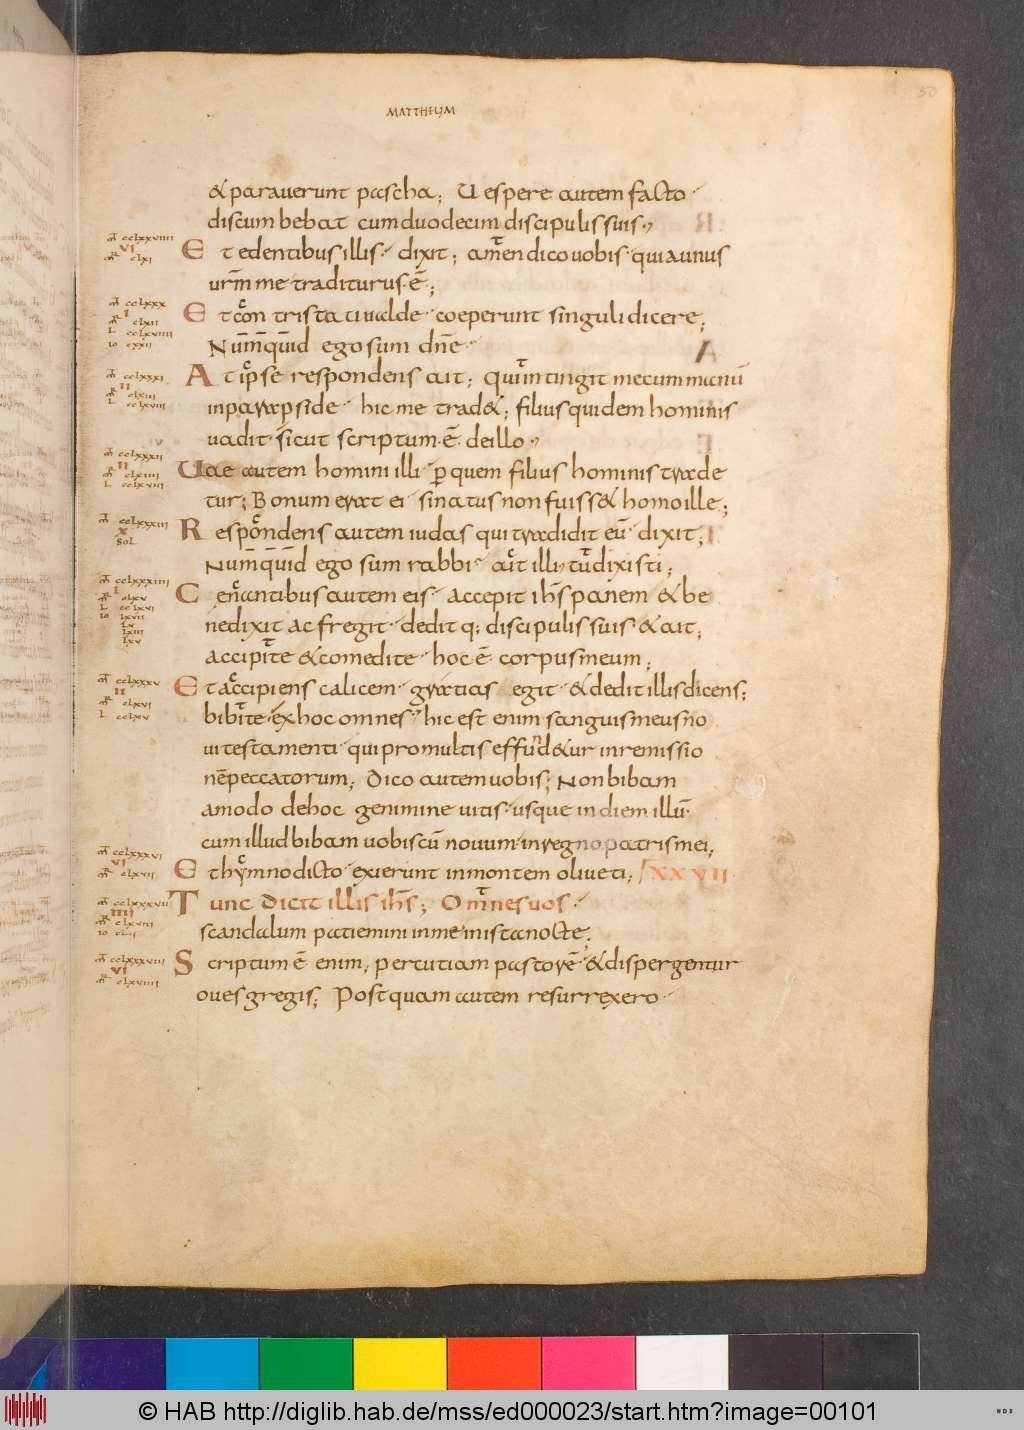 50
MATTHEUM
& parauerunt pascha; Uespere autem facto
discumbebat cum duodecim discipulis suis,
mt cclxxviiii
VI
mr clxi
Et edentibus illis dixit; amen dico uobis quia unus
urm̄ me traditurus ē;
mt cclxxx
I
mr clxii
L cclxviiii
io cxxii
Et con tristati ualde coeperunt singuli dicere;
Num̄quid ego sum dn̄e
mt cclxxxi
II
mr clxiii
L cclxviii
At ipse respondens ait; qui intingit mecum manū
in parapside hic me trad&; filius quidem hominis
uadit sicut scriptum ē de illo,
mt cclxxxii
II
mr clxiiii
L cclxviii
Uae autem homini illi p̱ quem filius hominis trade
tur; Bonum erat ei si natus non fuiss& homo ille;
mt cclxxxiii
X
Sol
Respondens autem iudas qui tradidit eū dixit;
Num̄quid ego sum rabbi ait illi, tu dixisti;
mt cclxxxiiii
I
mr clxv
L cclxvi
io lxvii
lv
lxiii
lxv
Cenantibus autem eis accepit ihs̄ panem & be
nedixit ac fregit dedit q; discipulis suis & ait;
accipite & comedite hoc ē corpus meum;
mt cclxxxv
II
mr clxvi
L cclxv
Et accipiens calicem gratias egit & dedit illis dicens;
bibite ex hoc omnes hic est enim sanguis meus no
ui testamenti qui pro multis effund&ur in remissio
nē peccatorum; Dico autem uobis; Non bibam
amodo de hoc genimine uitis usque in diem illū
cum illud bibam uobiscū nouum in regno patris mei;
mt cclxxxvi
VI
mr clxvii
Et hymno dicto exierunt in montem oliueti; XXVII
mt cclxxxvii
IIII
mr clxviii
io clii
Tunc Dicit illis ihs̄; Omnes uos
scandalum patiemini in me in ista nocte;
mt cclxxxviii
VI
mr clxviiii
Scriptum ē enim; percutiam pastorē & dispergentur
oues gregis; Postquam autem resurrexero
© HAB http://diglib.hab.de/mss/ed000023/start.htm?image=00101
WDB